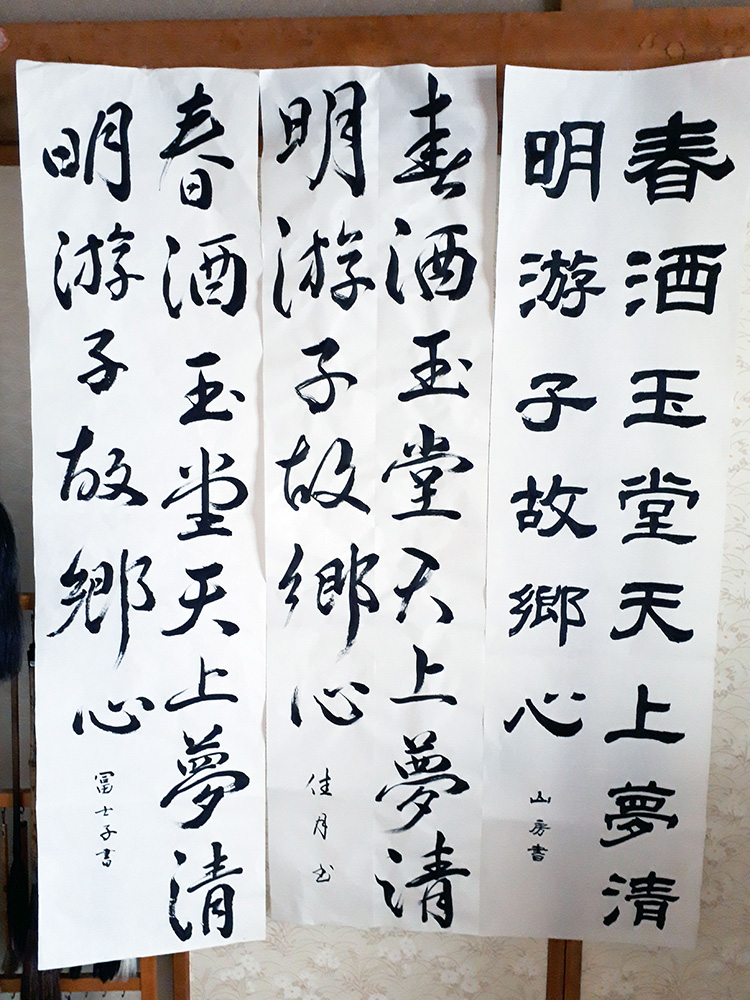 春酒玉堂天上夢清
明游子故郷心
山房書
春酒玉堂天上夢清
明游子故郷心
佳月書
春酒玉堂天上夢清
明游子故郷心
冨士子書